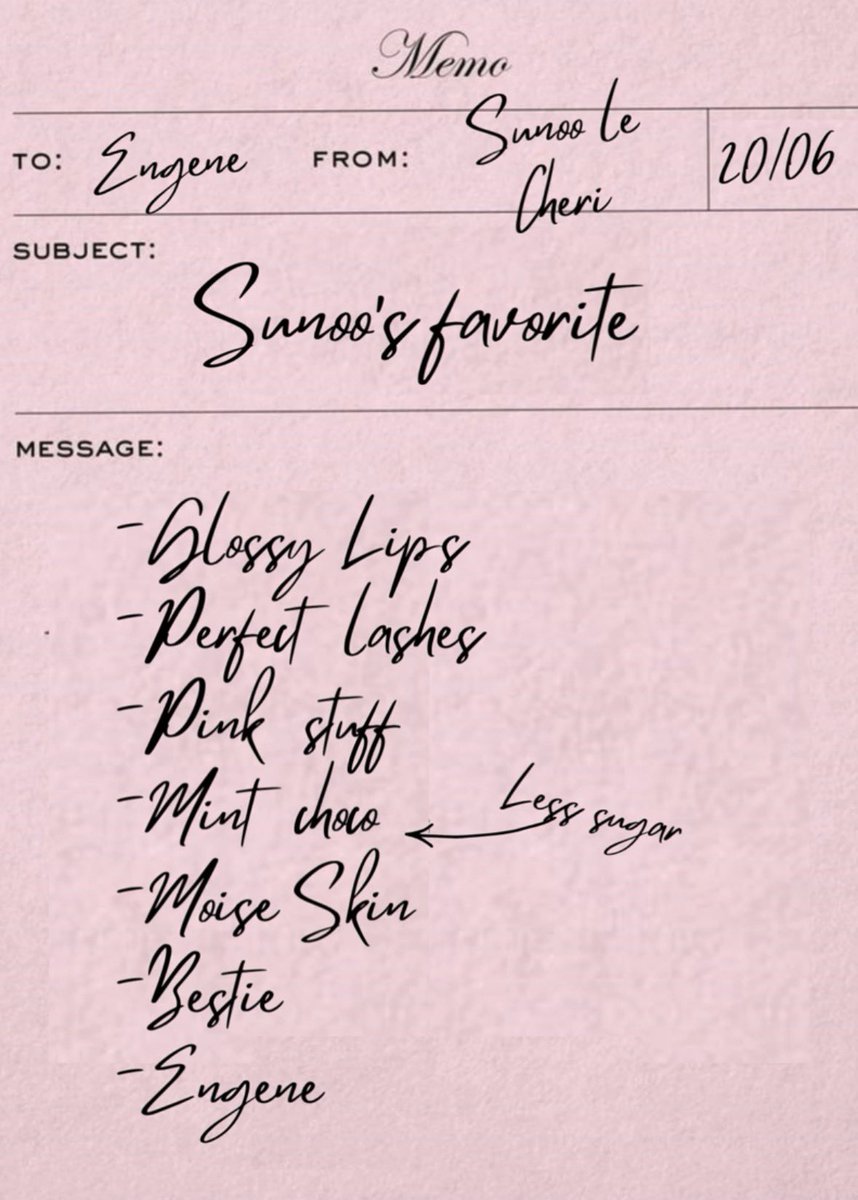 Memo
TO: Engene FROM: Sunoo Le
Cheri
20/06
SUBJECT:
Sunoo's favorite
MESSAGE:
-Glossy Lips
-Perfect lashes
-Pink stuff
-Mint choco
Less sugar
-Moise Skin
-Bestie
-Engene